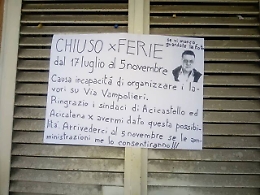 CHIUSO x FERIE
se vi manco
guardate la foto
dal 17 luglio al 5 novembre
Causa incapacità di organizzare i la-
vori su Via Vampolieri.
Ringrazio i sindaci di Acicastello ed
Acicatena x avermi dato questa possibi-
lità. Arrivederci al 5 novembre se le am-
ministrazioni me lo consentiranno!!!